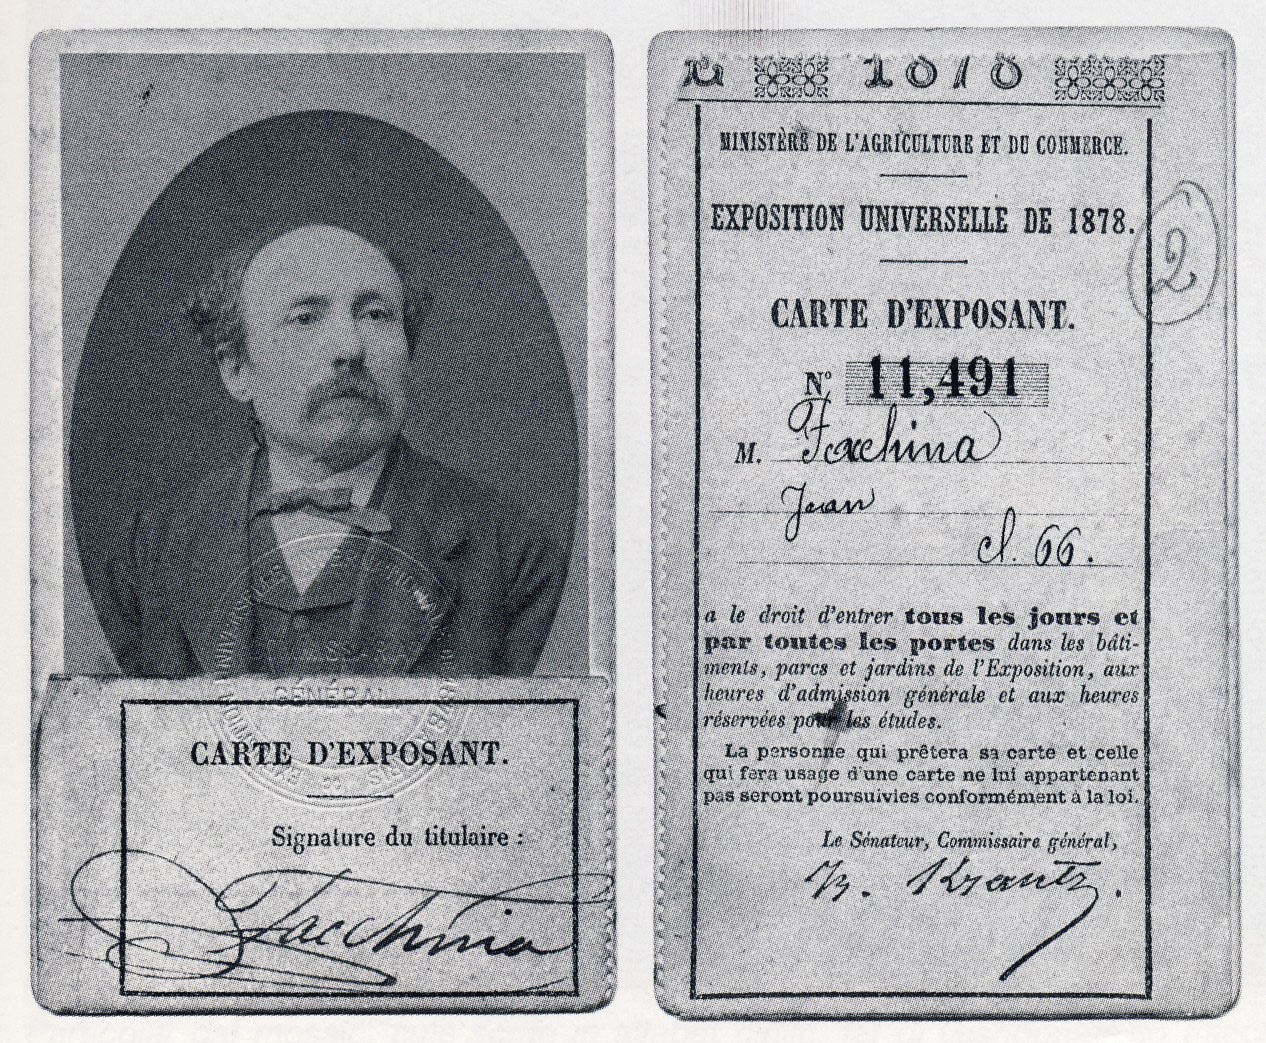 CARTE D'EXPOSANT.
Signature du titulaire :
Facchina
GÉNÉRAL
1878
MINISTÈRE DE L'AGRICULTURE ET DU COMMERCE.
EXPOSITION UNIVERSELLE DE 1878.
2
CARTE D'EXPOSANT.
N° 11,491
M. Fachina
Jean
cl. 66.
a le droit d'entrer tous les jours et
par toutes les portes dans les bâti-
ments, parcs et jardins de l'Exposition, aux
heures d'admission générale et aux heures
réservées pour les études.
La personne qui prêtera sa carte et celle
qui fera usage d'une carte ne lui appartenant
pas seront poursuivies conformément à la loi.
Le Sénateur, Commissaire général,
Krantz